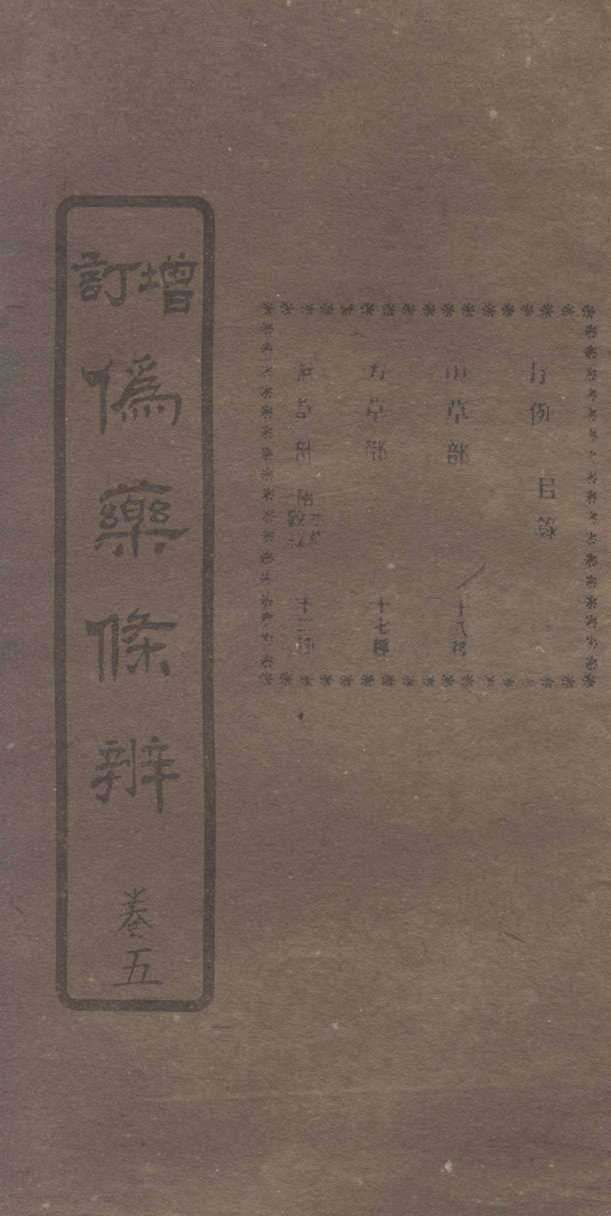 增訂
偽藥條辨
卷五
例 目
山草部 十八種
草部 十七種
草部 十二種